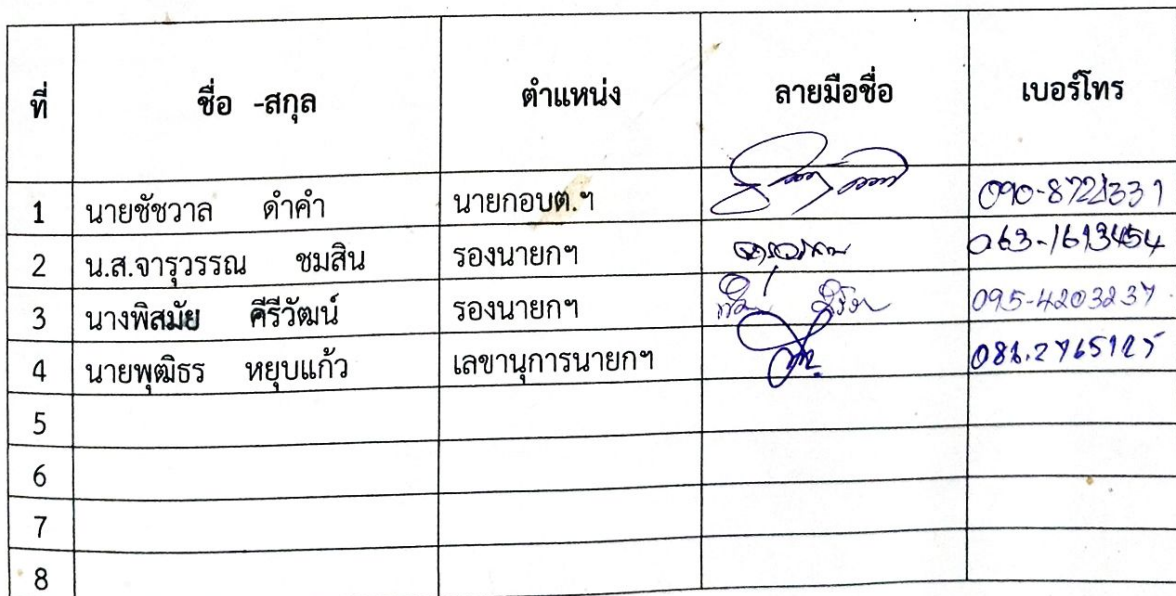 ที่ ชื่อ -สกุล ตำแหน่ง ลายมือชื่อ เบอร์โทร
1 นายชัชวาล ดำคำ นายกอบต.ฯ
2 น.ส.จารุวรรณ ชมสิน รองนายกฯ จารุวรรณ 063-1613454
3 นางพิสมัย คีรีวัฒน์ รองนายกฯ 095-4203237
4 นายพุฒิธร หยุบแก้ว เลขานุการนายกฯ
5
6
7
8